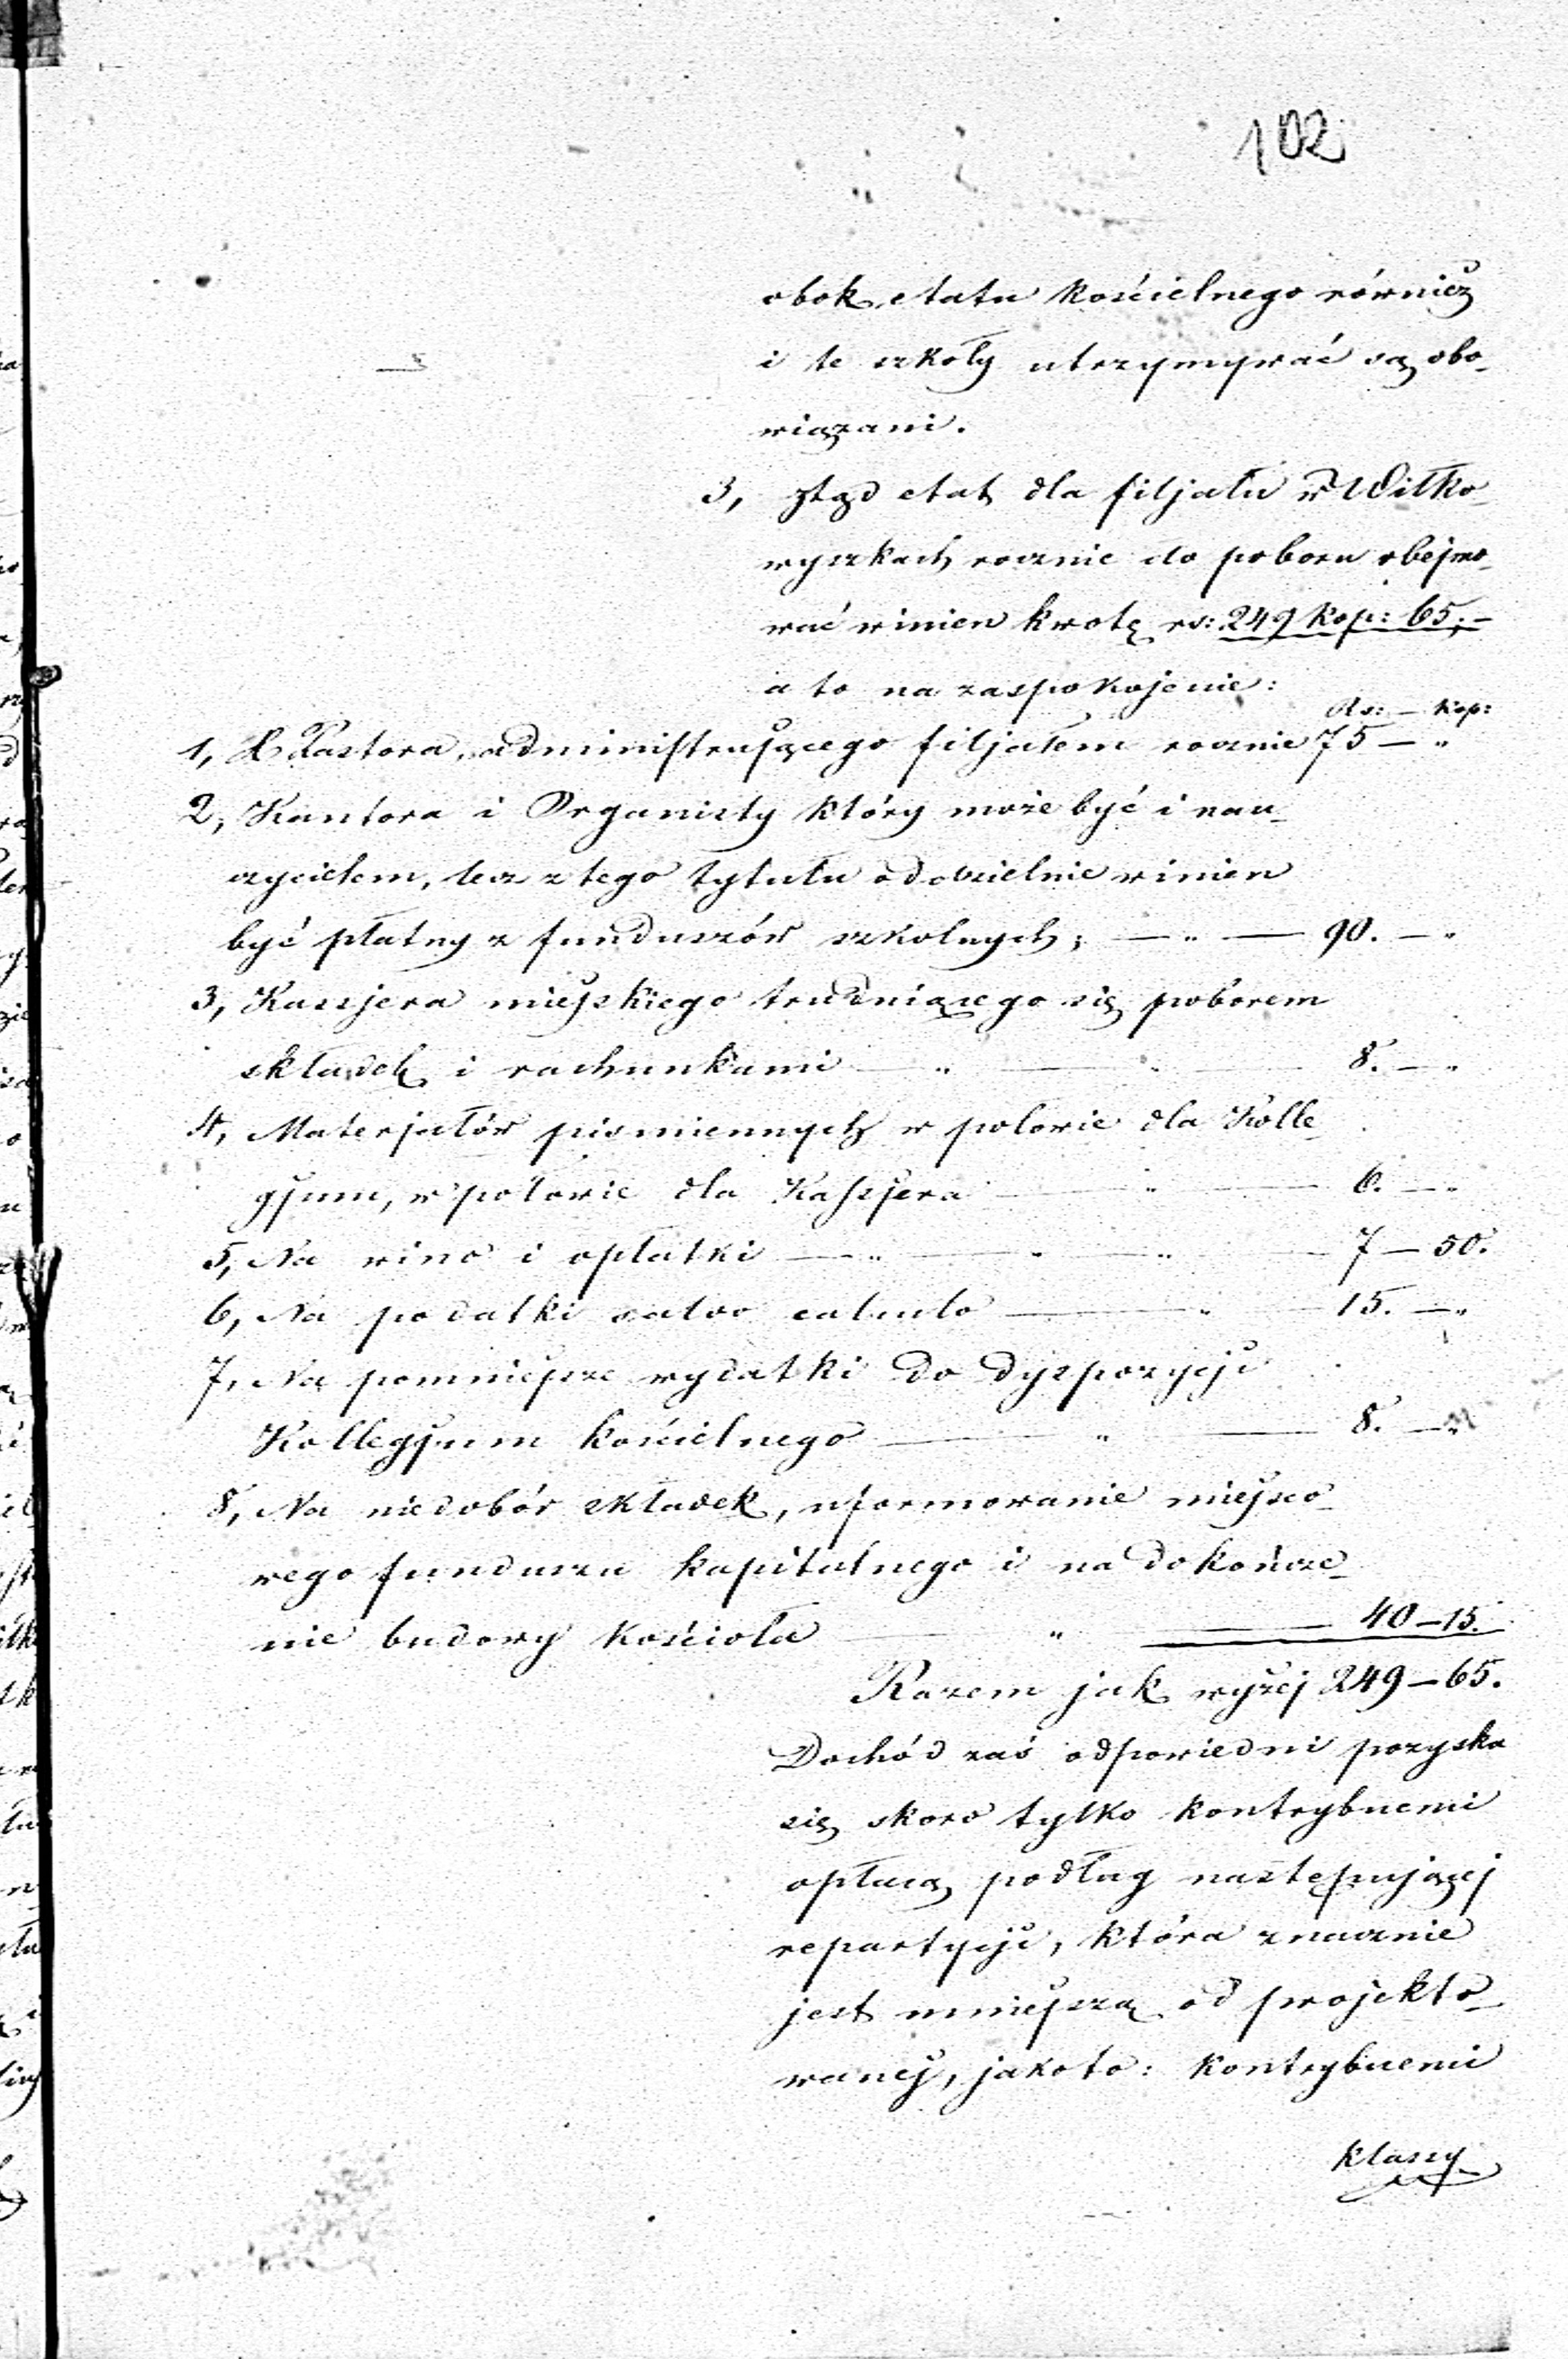 102
obok etatu kościelnego również
i te szkoły utrzymywać są obo-
wiązani.
3, ztąd etat dla filjału w Wiłko-
wyszkach rocznie do poboru obejmo-
wać winien kwotę rs: 249 kop: 65.-
a to na zaspokojenie:
Rs: — Kop:
1, X Pastora, administrującego filjałem rocznie 75 — "
2, Kantora i Organisty który może być i nau-
czycielem, lecz z tego tytułu oddzielnie winien
być płatny z funduszów szkolnych; — " — 90. — "
3, Kassjera miejskiego trudniącego się poborem
składek i rachunkami — " — " — 8. — "
4, Materjałów pismiennych w połowie dla Kolle-
gjum, w połowie dla Kassjera — " — 6. — "
5, Na wino i opłatki — " — " — " — 7 — 50.
6, Na podatki salvo calculo — " — 15. — "
7, Na pomniejsze wydatki do dyspozycji
Kollegjum kościelnego — " — 8. — "
8, Na niedobór składek, uformowanie miejsco-
wego funduszu kapitalnego i na dokończe-
nie budowy kościoła — " — 40 — 15.
Razem jak wyżej 249 — 65.
Dochód zaś odpowiedni pozyska
się skoro tylko kontrybuenci
opłacą podług następującej
repartycji, która znacznie
jest mniejszą od projekto-
wanej, jako to: kontrybuenci
klassy